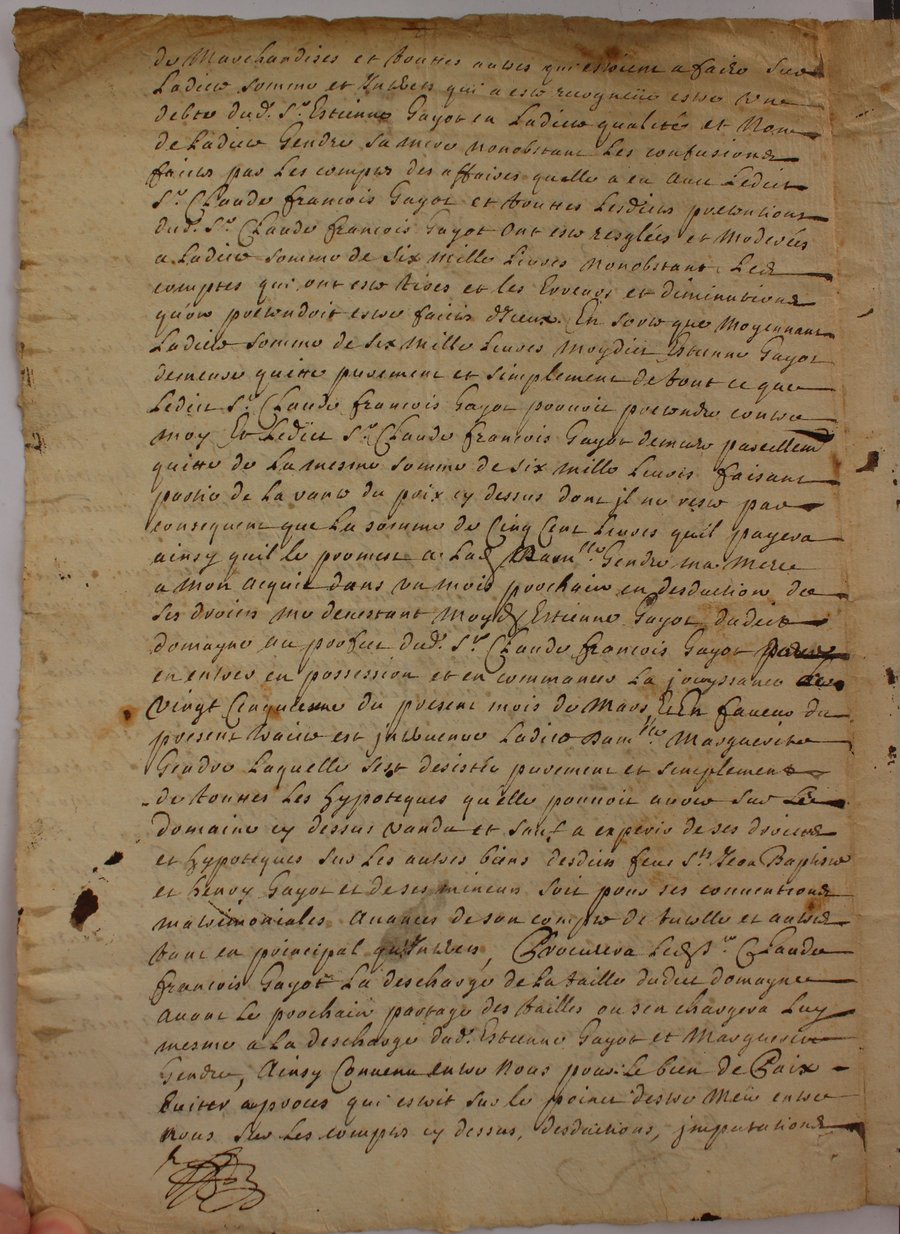 de Marchandises et touttes autres qui estoient a faire sur
Ladicte somme et Interets qui a este recogneüe estre une
debte dud. Sr. Estienne Gayot en Ladicte qualité et Nom
de Ladicte Gendre sa mere nonobstant Les confusions
faictes par Les comptes des affaires quelle a eu avec Ledict
Sr. Claude francois Gayot et touttes Lesdictes pretentions
dud. Sr. Claude francois Gayot ont este resglées et Moderées
a Ladicte somme de Six mille Livres nonobstant Les
comptes qui ont este tires et les Erreurs et diminutions
qu'on pretendoit estre faictes d'Iceux. En sorte que Moyennant
Ladicte somme de six mille Livres moydict Estienne Gayot
demeure quitte purement et simplement de tout ce que
Ledict Sr. Claude francois Gayot pouvoit pretendre contre
moy Et Ledict Sr. Claude francois Gayot demeure pareillemt
quitte de La mesme somme de six mille Livres faisant
partie de La vante du prix cy dessus dont jl ne reste par
consequent que La somme de Cinq Cent Livres quil payera
ainsy quil le promest a Lad. Damlle Gendre ma Mere
a mon acquit dans un mois prochain en desduction de
ses droicts me devestant Moyd. Estienne Gayot dudict
domayne au profict dud. Sr. Claude francois Gayot pour
en entrer en possession et en commancer La jouyssance Le
Vingt Cinquiesme du present mois de Mars Et En faveur du
present traicté est jntervenue Ladicte Damlle Marguerite
Gendre Laquelle sest desistée purement et simplement
de touttes Les Hypoteques qu'elle pouvoit avoir sur Le
Domaine cy dessus vandu et sauf a experir de ses droicts
et Hypoteques sur Les autres biens desdicts feus Srs Jean Baptiste
et Henry Gayot et de ses mineurs soit pour ses conventions
matrimoniales Avances de son compte de tutelle et autres
tant en principal qu'Interets, Procurera Led. Sr Claude
francois Gayot La descharge de La taille dudict domayne
avant Le prochain partage des tailles ou sen chargera Luy
mesme a La descharge dud. Estienne Gayot et Marguerite
Gendre, Ainsy Convenu entre Nous pour Le bien de Paix
Eviter a proces qui estoit sur le poinct destre Meü entre
Nous sur Les comptes cy dessus, desductions, jmputations